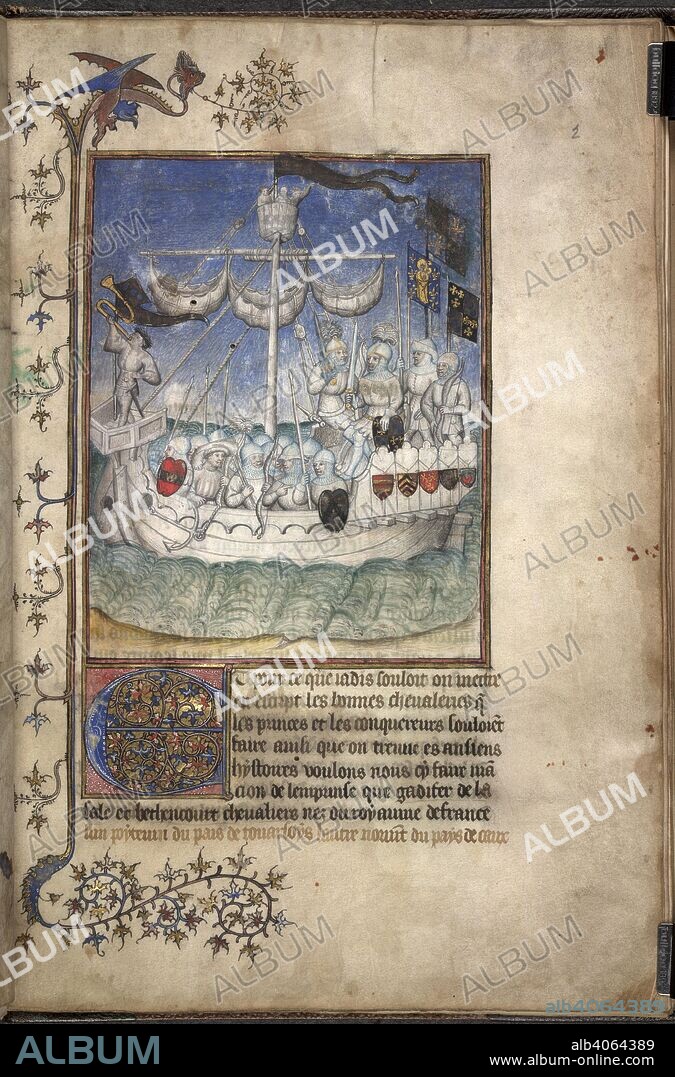 2
Et pour ce que iadis souloit on mectre
en escript les bonnes cheualeries q̃
les princes et les conquereurs souloiēt
faire ainsi que on treuue es ansiens
hystoires voulons nous cy faire mā
cion de lemprinse que gadifer de la
sale et bethencourt cheualiers nez du royaume de france
lun poyteuin du pais de touarsoys lautre norm̄t du pays de caux
ALBUM
alb4064389
ALBUM
alb4064389
www.album-online.com